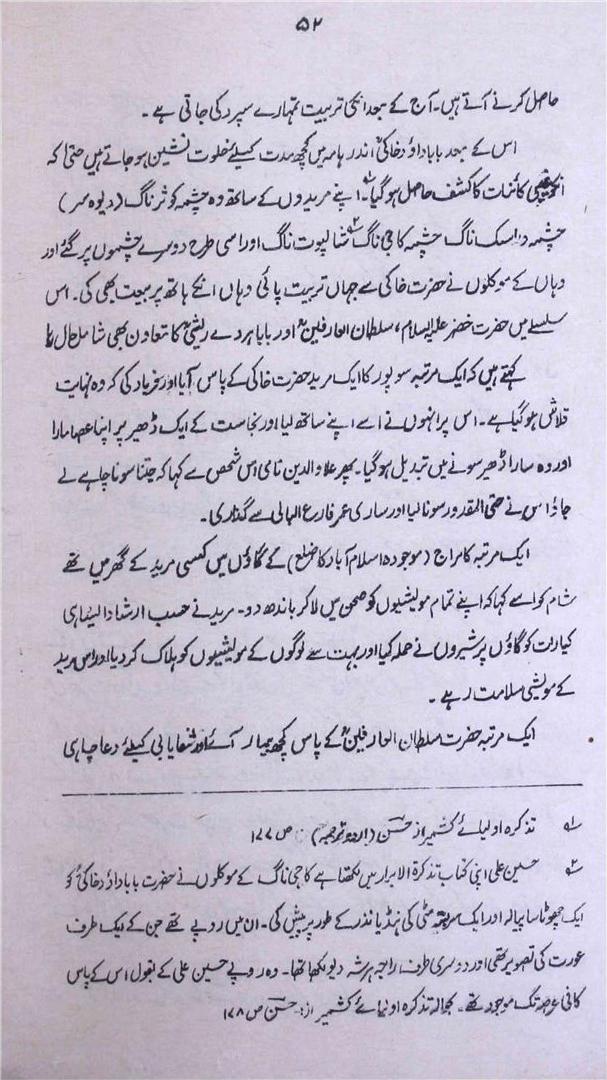 ۵۲
حاصل کرنے آتے ہیں۔ آج کے بعد انکی تربیت تمہارے سپرد کی جاتی ہے۔
اس کے بعد بابا داؤد خاکیؒ اندرہامہ میں کچھ مدت کیلئے خلوت نشین ہو جاتے ہیں حتیٰ کہ
انکو غیبی کائنات کا کشف حاصل ہو گیا۱؎۔ اپنے مریدوں کے ساتھ وہ چشمہ کوثر ناگ (دیوہ سر)
چشمہ واسک ناگ چشمہ کاجی ناگ۲؎ شالپوت ناگ اور اسی طرح دوسرے چشموں پر گئے اور
وہاں کے موکلوں نے حضرت خاکی سے جہاں تربیت پائی وہاں انکے ہاتھ پر بیعت بھی کی۔ اس
سلسلے میں حضرت خضر علیہ السلام، سلطان العارفینؒ اور بابا ہردے ریشیؒ کا تعاون بھی شامل حال رہا
کہتے ہیں کہ ایک مرتبہ سوپور کا ایک مرید حضرت خاکی کے پاس آیا اور فریاد کی کہ وہ نہایت
قلاش ہو گیا ہے۔ اس پر انہوں نے اسے اپنے ساتھ لیا اور نجاست کے ایک ڈھیر پر اپنا عصا مارا
اور وہ سارا ڈھیر سونے میں تبدیل ہو گیا۔ پھر علاؤالدین نامی اس شخص سے کہا کہ جتنا سونا چاہے لے
جاؤ اس نے حتی المقدور سونا لیا اور ساری عمر فارغ البالی سے گذاری۔
ایک مرتبہ کامراج (موجودہ اسلام آباد کا ضلع) کے گاؤں میں کسی مرید کے گھر میں تھے
شام کو اسے کہا کہ اپنے تمام مویشیوں کو صحن میں لا کر باندھ دو۔ مرید نے حسب ارشاد ایسا ہی
کیا رات کو گاؤں پر شیروں نے حملہ کیا اور بہت سے لوگوں کے مویشیوں کو ہلاک کر دیا اور اس مرید
کے مویشی سلامت رہے۔
ایک مرتبہ حضرت سلطان العارفینؒ کے پاس کچھ بیمار آئے اور شفایابی کیلئے دعا چاہی
۱؎ تذکرہ اولیائے کشمیر از حسن (اردو ترجمہ) ص ۱۷۷
۲؎ حسین علی اپنی کتاب تذکرۃ الابرار میں لکھتا ہے کاجی ناگ کے موکلوں نے حضرت بابا داؤد خاکیؒ کو
ایک چھوٹا سا پیالہ اور ایک مٹی کی ہنڈیا نذر کے طور پر پیش کی۔ ان میں روپے تھے جن کے ایک طرف
عورت کی تصویر تھی اور دوسری طرف راجہ ہرشہ دیو لکھا تھا۔ وہ روپے حسین علی کے بقول اس کے پاس
کافی عرصہ تک موجود تھے۔ بحوالہ تذکرہ اولیائے کشمیر از:۔ حسن ص ۱۷۸